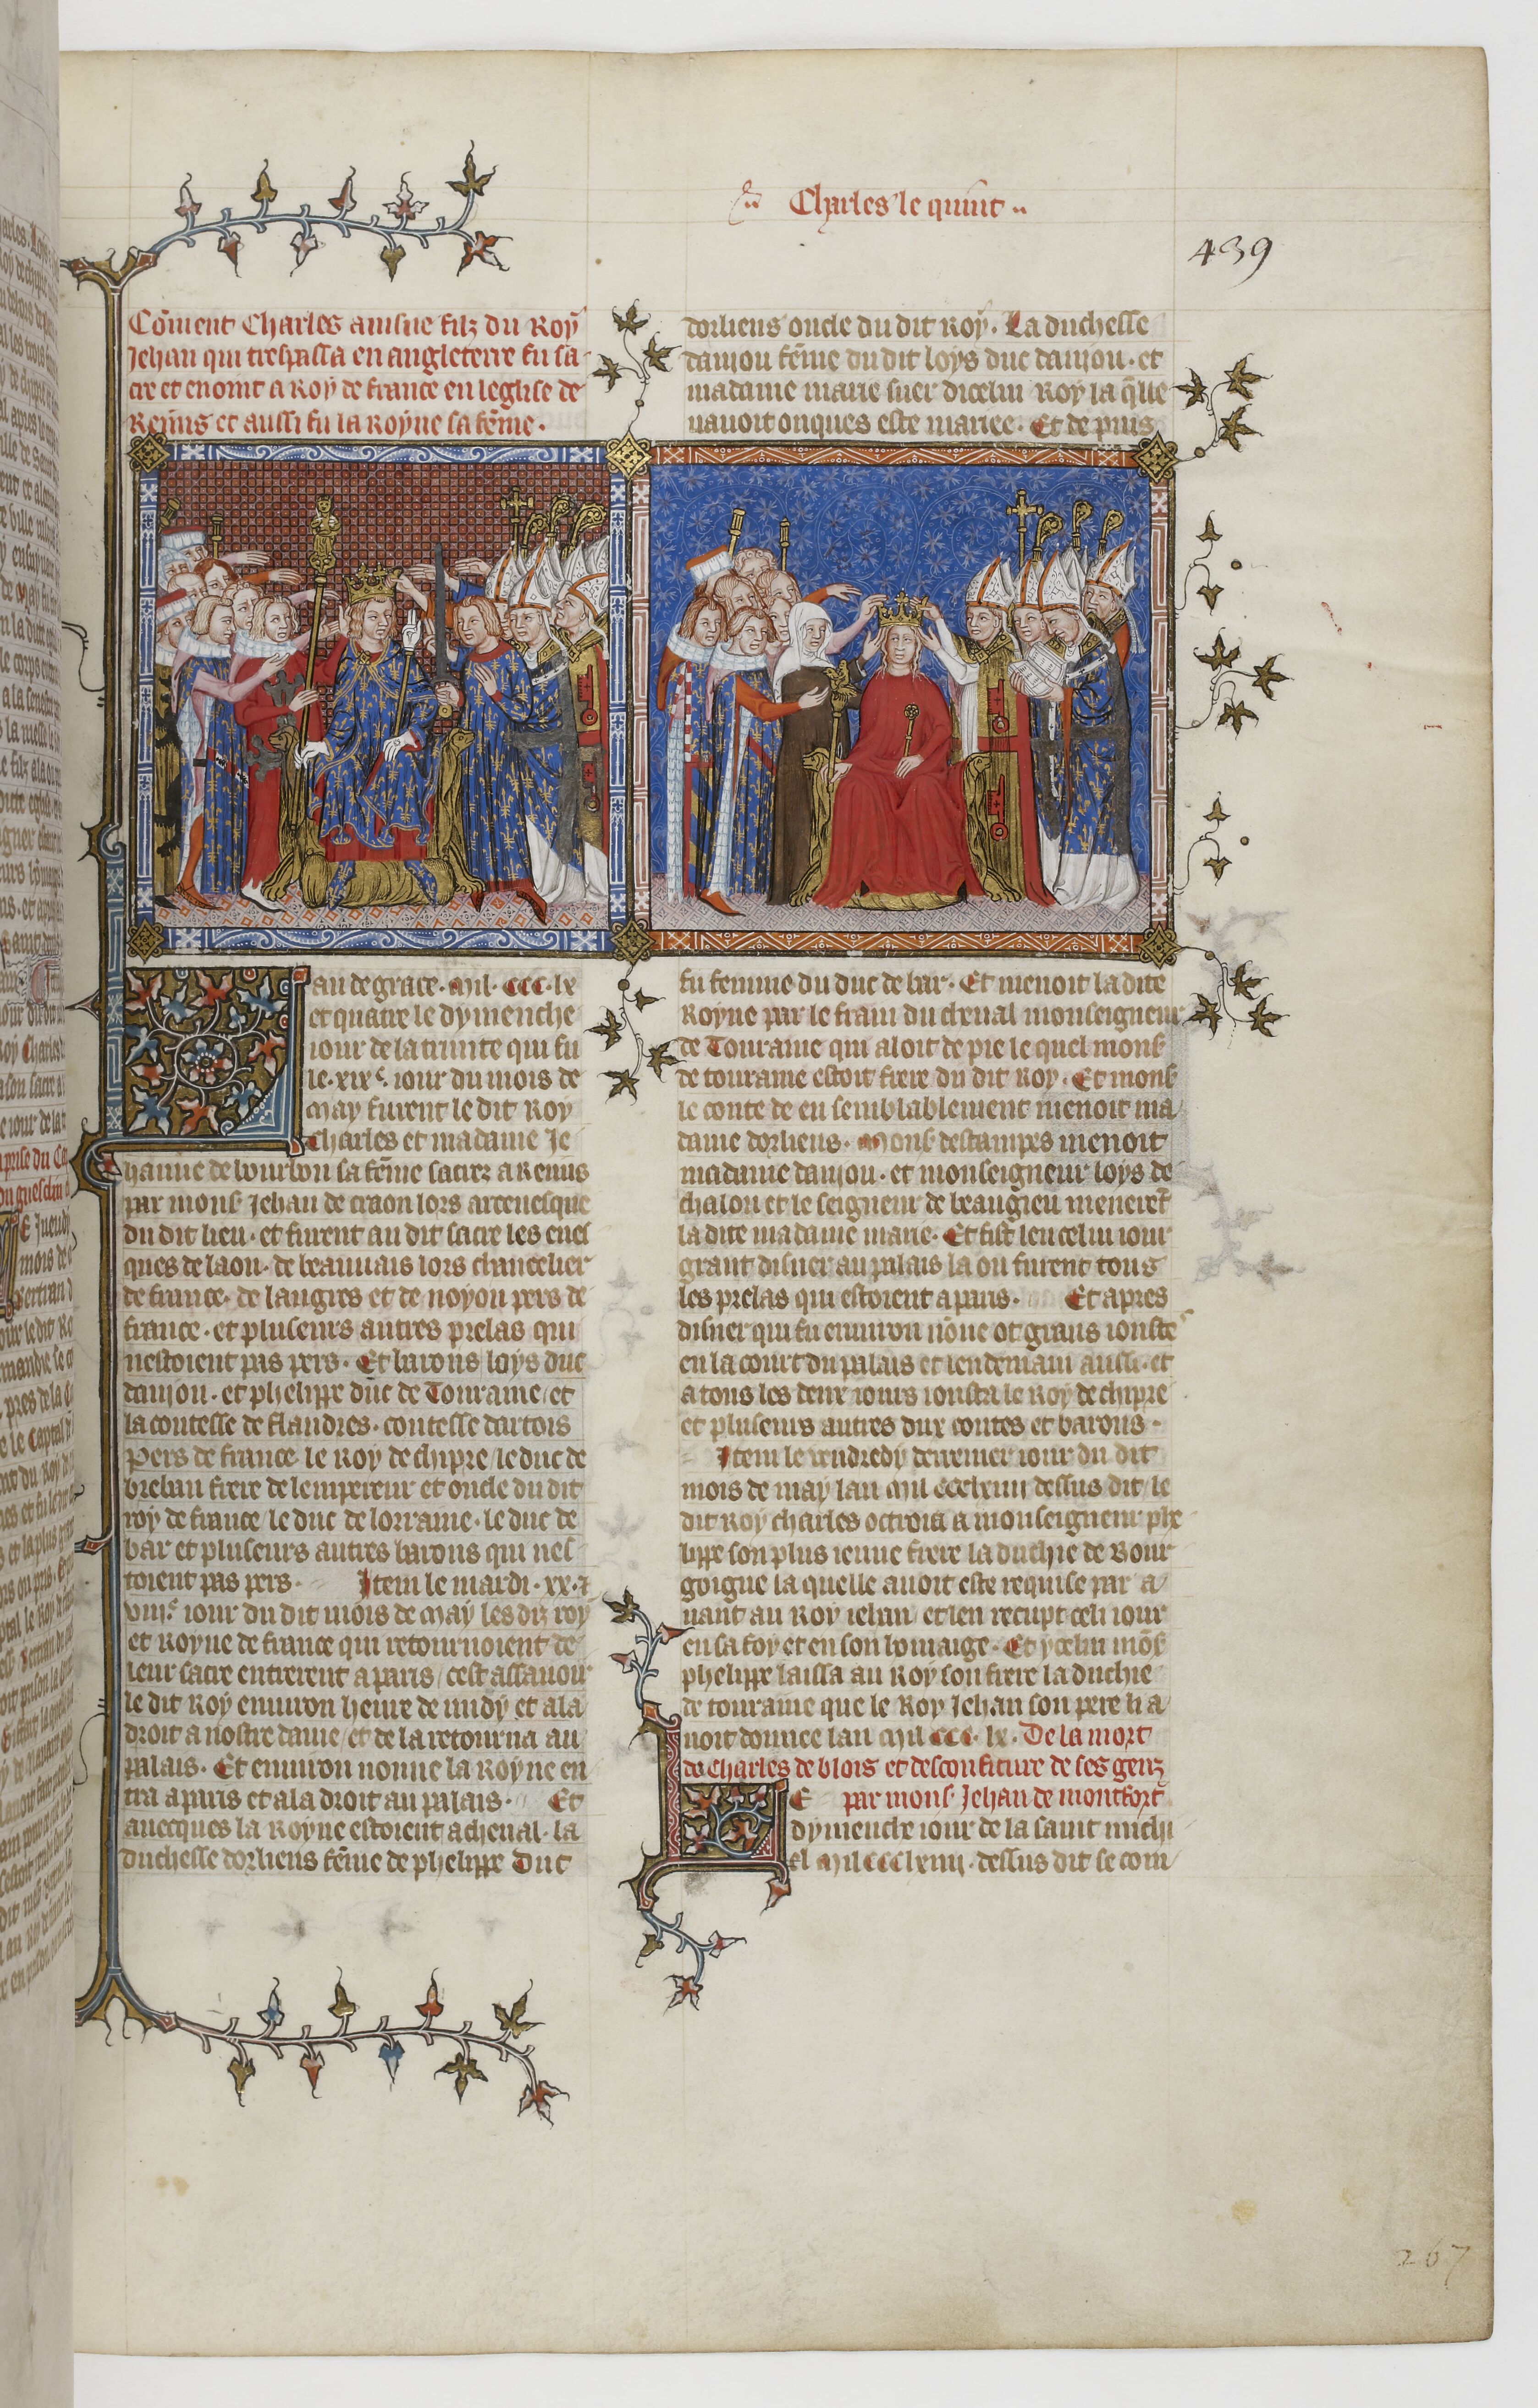 Charles le quint
439
Cōment Charles ainsne filz du Roy
Jehan qui trespassa en angleterre fu sa
cre et enoint a Roy de france en leglise de
Reims et aussi fu la Royne sa fēme.
an de grace. mil. ccc. lx
et quatre le dymenche
iour de la trinite qui fu
le. xixe. iour du mois de
may furent le dit Roy
Charles et madame Je
hanne de bourbon sa fēme sacrez a Reims
par mons Jehan de craon lors arcevesque
du dit lieu. et furent au dit sacre les eves
ques de laon. de beauvais lors chancelier
de france. de langres et de noyon pers de
france. et pluseurs autres prelas qui
nestoient pas pers. Et barons loys duc
danjou. et phelippe duc de Touraine et
la contesse de flandres. contesse dartois
Pers de france le Roy de chipre le duc de
breban frere de lempereur et oncle du dit
roy de france le duc de lorraine. le duc de
bar et pluseurs autres barons qui nes
toient pas pers. Item le mardi. xx. et
viije iour du dit mois de may les diz roy
et Royne de france qui retournoient de
leur sacre entrerent a paris cest assavoir
le dit Roy environ heure de midy et ala
droit a nostre dame et de la retourna au
palais. Et environ nonne la Royne en
tra a paris et ala droit au palais. Et
avecques la Royne estoient a cheval. la
duchesse dorliens fēme de phelippe Duc
dorliens oncle du dit Roy. La duchesse
danjou fēme du dit loys duc danjou. et
madame marie suer dicelui Roy la q̄lle
navoit onques este mariee. Et de puis
fu femme du duc de bar. Et menoit la dite
Royne par le frain du cheval monseigneur
de Touraine qui aloit de pie le quel mons
de touraine estoit frere du dit Roy. Et mons
le conte de eu semblablement menoit ma
dame dorliens. Mons destampes menoit
madame danjou. et monseigneur loys de
chalon et le seigneur de beaugieu menerēt
la dite madame marie. Et fist len celui iour
grant disner au palais la ou furent tous
les prelas qui estoient a paris. Et apres
disner qui fu environ nōne ot grans ioustes
en la court du palais et lendemain aussi. et
a tous les deux iours iousta le Roy de chipre
et pluseurs autres dux contes et barons.
Item le vendredy derrenier iour du dit
mois de may lan mil ccclxiiii dessus dit le
dit Roy charles octroia a monseigneur phe
lippe son plus ienne frere la duchie de Bour
goigne la quelle avoit este requise par a
vant au Roy iehan et len recupt celi iour
en sa foy et en son homaige. Et ycelui mōs
phelippe laissa au Roy son frere la duchie
de touraine que le Roy Jehan son pere li a
voit donnee lan mil ccc. lx. De la mort
de Charles de blois et desconfiture de ses genz
E par mons Jehan de montfort
dymenche iour de la saint michi
el mil ccclxiiii. dessus dit se com
267